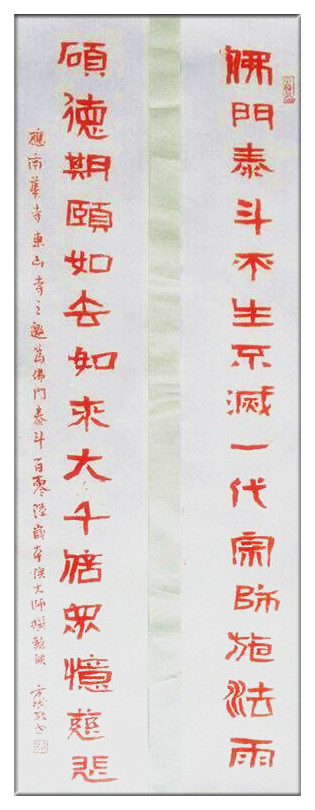 佛門泰斗不生不滅一代宗師施法雨
碩德期頤如去如來大千信眾憶慈悲
應南華寺東山寺之邀為佛門泰斗百零陸歲本煥大師撰輓聯